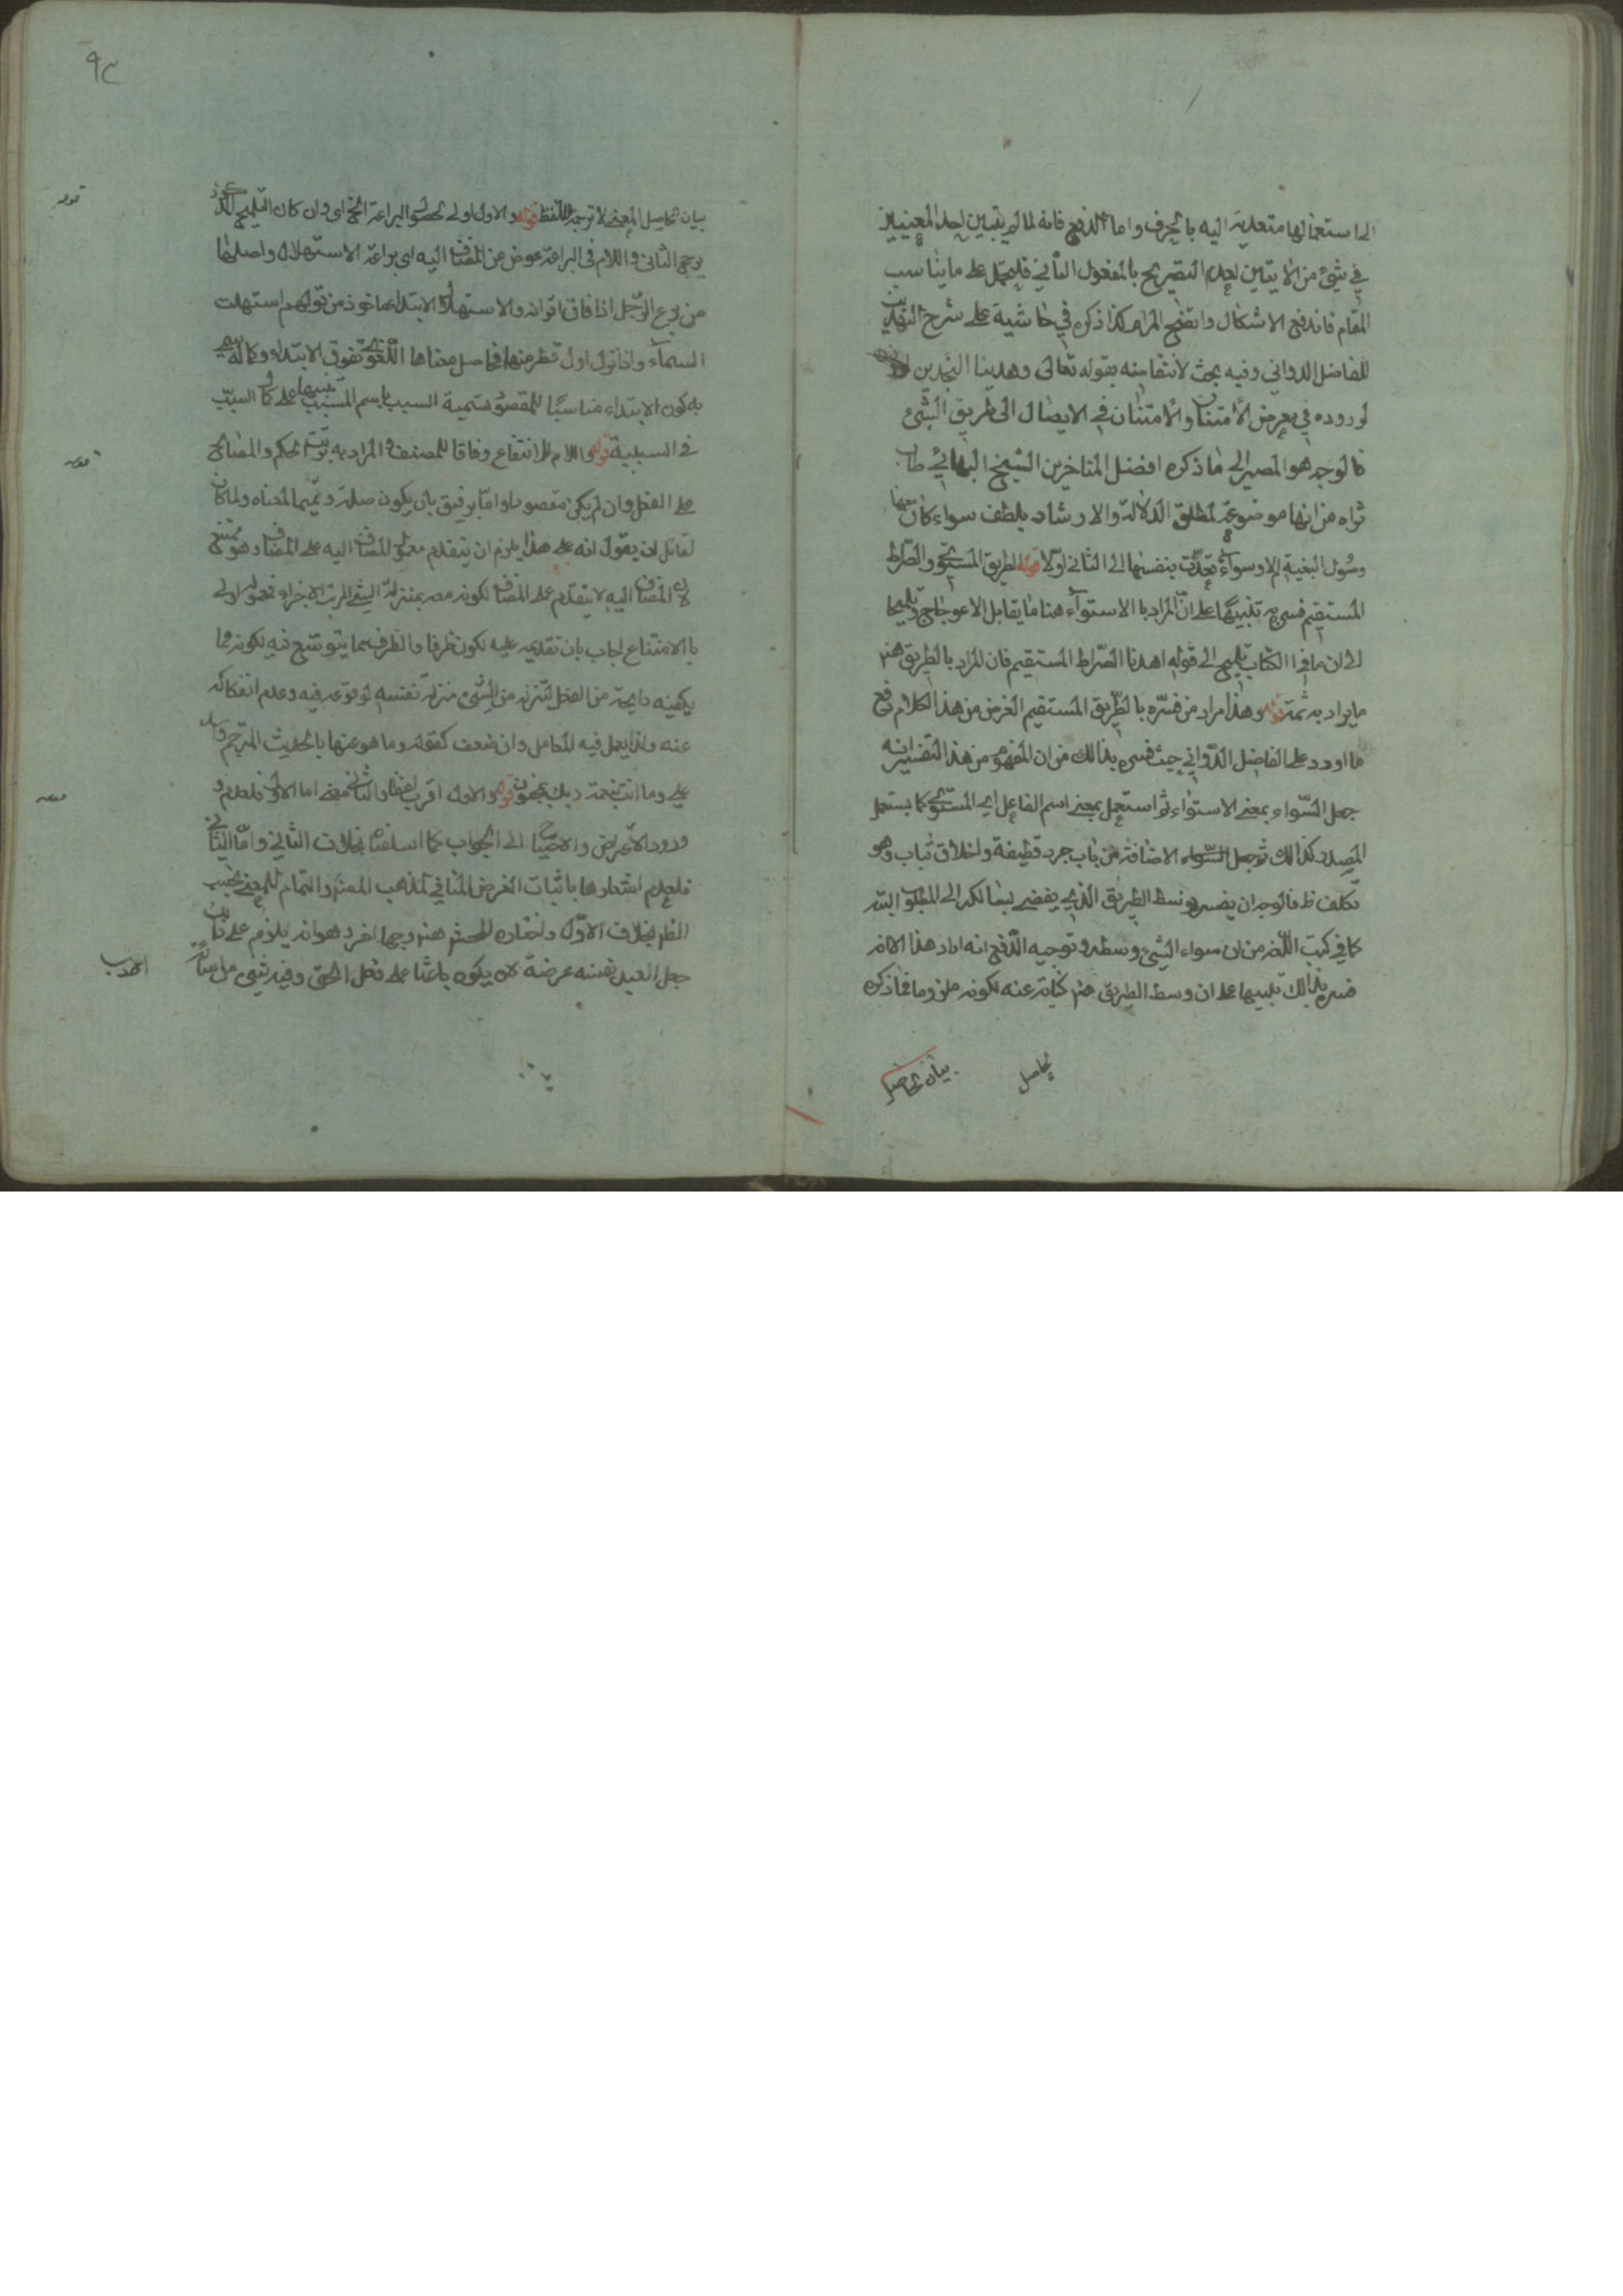 الى استعمالها متعدية اليه بالحرف واما الدفع فانه لما لم يتبين احد المعنيين
في شئ من الايتين لعدم التصريح بالمفعول الثاني فليحمل على ما يناسب
المقام فاندفع الاشكال واتضح المرام كذا ذكره في حاشية على شرح التهذيب
للفاضل الدواني وفيه بحث لانتقاضه بقوله تعالى وهديناه النجدين
لوروده في معرض الامتنان والامتنان في الايصال الى طريق الشئ
فالوجه هو المصير الى ما ذكره افضل المتاخرين الشيخ البهائي طاب
ثراه من انها موضوعة لمطلق الدلالة والارشاد بلطف سواء كان معها
وصول البغية ام لا وسواء تعدت بنفسها الى الثاني او لا قوله الطريق المستوي والصراط
المستقيم فسره به تنبيها على ان المراد بالاستواء هنا ما يقابل الاعوجاج وتلميحا
الى ان ما في الكتاب تلميح الى قوله اهدنا الصراط المستقيم فان المراد بالطريق هنا
ما يراد به ثمة قوله وهذا مراد من فسره بالطريق المستقيم الغرض من هذا الكلام دفع
ما اورد على الفاضل الدواني حيث فسره بذالك من ان المفهوم من هذا التفسير انه
جعل السواء بمعنى الاستواء ثم استعمل بمعنى اسم الفاعل اي المستوي كما يستعمل
المصدر كذالك ثم جعل الاضافة من باب جرد قطيفة واخلاق ثياب وهو
تكلف ظ فالوجه ان يفسر بوسط الطريق الذي يفضي بسالكه الى المطلوب البتة
كما في كتب اللغة من ان سواء الشئ وسطه وتوجيه الدفع انه اراد هذا الا انه
فسره بذالك تنبيها على ان وسط الطريق هنا كناية عنه لكونه ملزوما فما ذكره
حاصل
بيان حاصل
٩٣
بيان حاصل المعنى لا ترجمة اللفظ قوله والاول اولى لحصول البراعة الخ اي وان كان التلميح
يرجح الثاني واللام في البراعة عوض عن المضاف اليه اي براعة الاستهلال واصلها
من برع الرجل اذا فاق اقرانه والاستهلال الابتداء ماخوذ من قولهم استهلت
السماء واذا نزل اول قطر منها فحاصل معناها اللغوي تفوق الابتداء وكماله سمي
به كون الابتداء مناسبا للمقصود تسمية السبب باسم المسبب تنبيها على كمال السبب
في السببية قوله واللام للانتفاع وفاقا للمصنف والمراد به ترتب الحكم والمصالح
على الفعل وان لم يكن مقصودا واما برفيق بان يكون صلة وتميما لمعناه ولما كان
لقائل ان يقول انه على هذا يلزم ان يتقدم معمول المضاف اليه على المضاف وهو ممتنع
لان المضاف اليه لا يتقدم على المضاف لكونه معه بمنزلة الشئ المرتب الاجزاء فمعموله اولى
بالامتناع اجاب بان تقديمه عليه لكون ظرفا والظرف مما يتوسع فيه لكونه مما
يكفيه رايحة من الفعل لتنزله من الشئ منزلة نفسه لوقوعه فيه وعدم انفكاكه
عنه ولذا يعمل فيه العامل وان ضعف كقوله وما هو عنها بالحديث المرجم وقوله
على وما انت بنعمة ربك بمجنون قوله والاول اقرب لفظا والثاني معنى اما الاول فلعدم
ورود الاعتراض والاحتياج الى الجواب كما اسلفناه بخلاف الثاني واما الثاني
فلعدم اشعارها باثبات الغرض المنافي لمذهب والتمام للمعنى بحسب
النظر بخلاف الاول واختاره المحشي هنا وجها اخر وهو انه يلزم على الثاني
جعل العبد نفسه عرضة لان يكون باعثا على فعل الحق وفيه شئ من
قوله
قوله
قوله